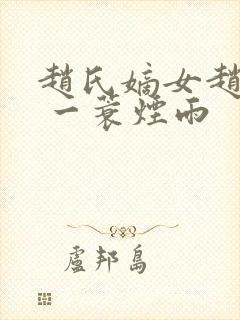 趙氏嫡女趙
一蓑煙雨
盧邦島